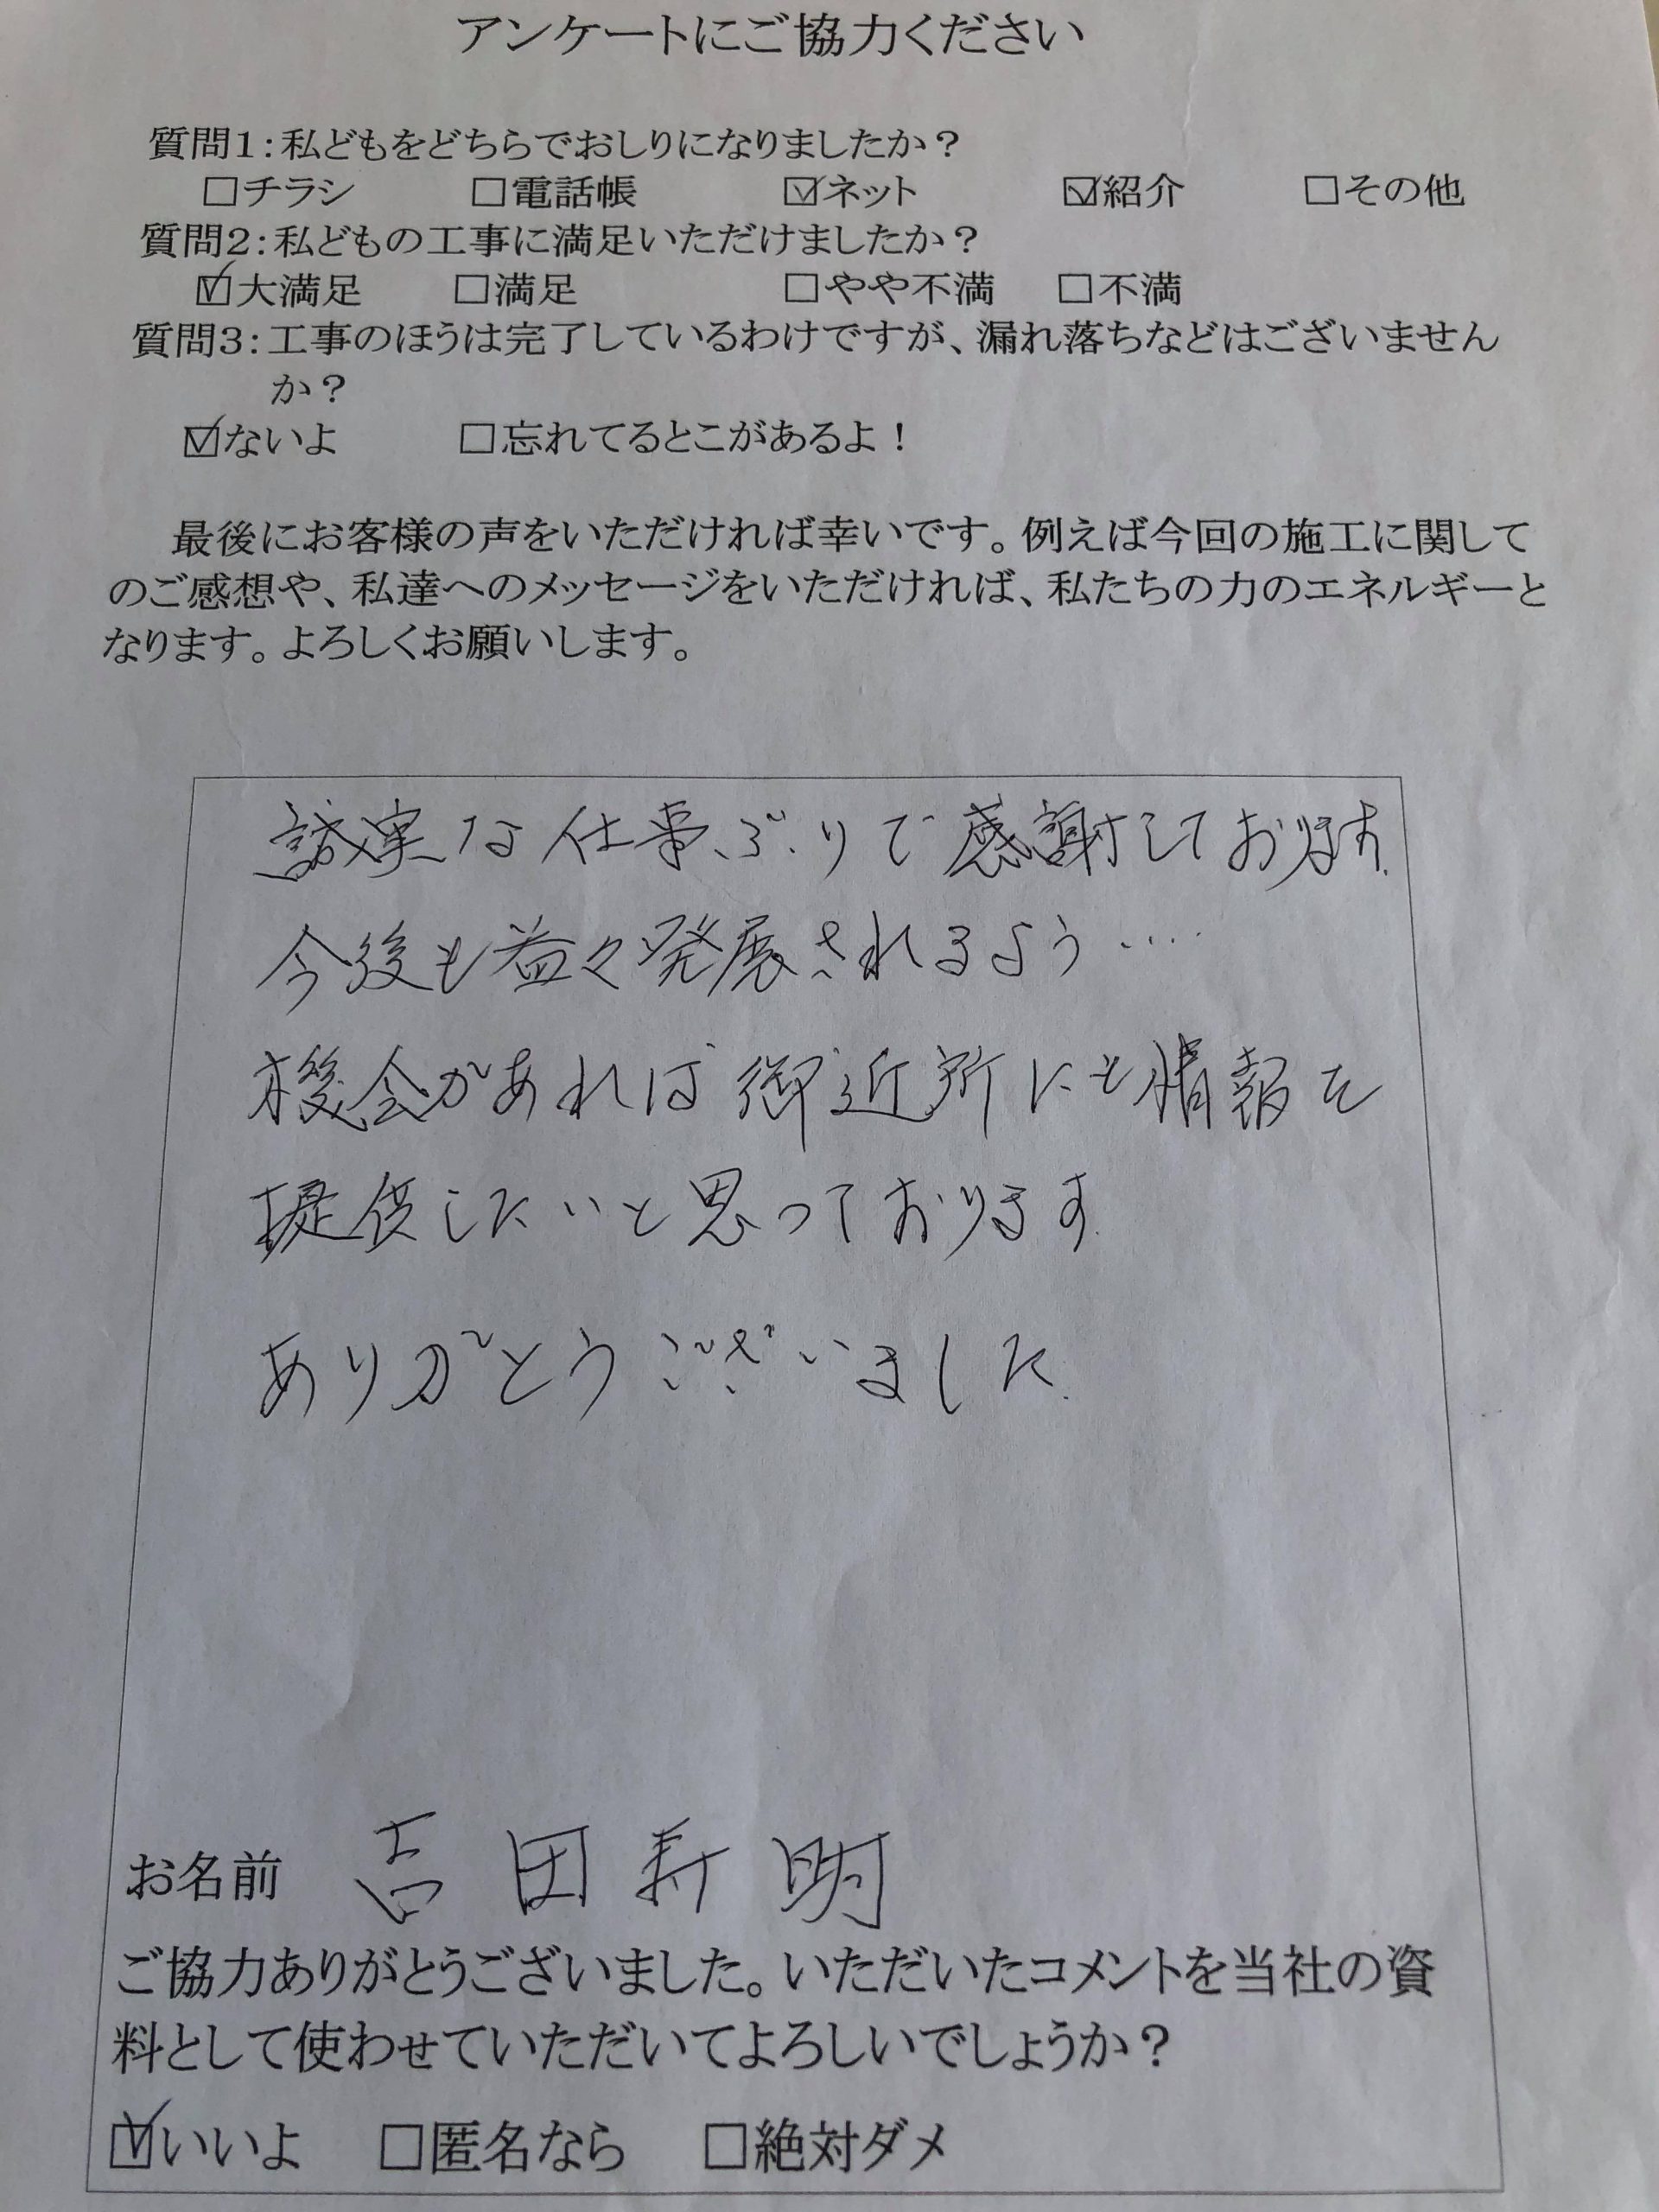 アンケートにご協力ください
質問1：私どもをどちらでおしりになりましたか？
□チラシ □電話帳 ☑ネット ☑紹介 □その他
質問2：私どもの工事に満足いただけましたか？
☑大満足 □満足 □やや不満 □不満
質問3：工事のほうは完了しているわけですが、漏れ落ちなどはございません
か？
☑ないよ □忘れてるとこがあるよ！
最後にお客様の声をいただければ幸いです。例えば今回の施工に関して
のご感想や、私達へのメッセージをいただければ、私たちの力のエネルギーと
なります。よろしくお願いします。
誠実な仕事ぶりで感謝しております.
今後も益々発展されるよう‥‥
機会があれば御近所にも情報を
提供したいと思っております.
ありがとうございました.
お名前 吉田寿明
ご協力ありがとうございました。いただいたコメントを当社の資
料として使わせていただいてよろしいでしょうか？
☑いいよ □匿名なら □絶対ダメ